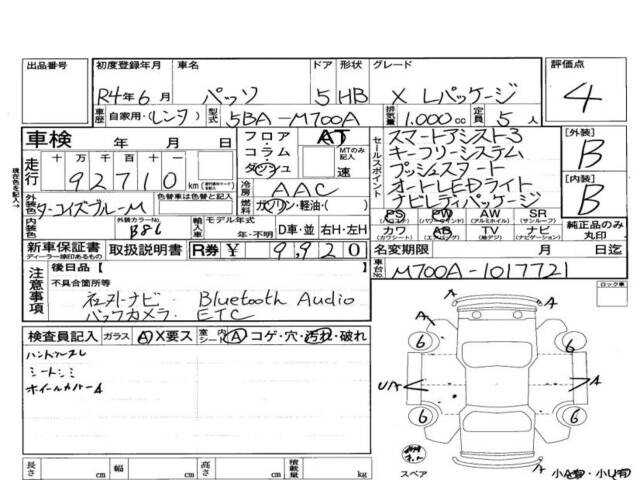 出品番号 初度登録年月 車名 ドア 形状 グレード 評価点
R4年6月 パッソ 5 HB X Lパッケージ 4
車歴 自家用・(レンタ) 型式 5BA-M700A 排気量 1.000cc 定員 5人
車検 年 月 日
フロア・コラム・ダッシュ AT MTのみ記入 速
セールスポイント
スマートアシスト3
キーフリーシステム
プッシュスタート
オートLEDライト
ナビレディパッケージ
[外装] B
[内装] B
現在色を記入
走行 十万 万 千 百 十 一
92710 km
色替車は色替と記入
冷房 AAC
燃料 ガソリン・軽油・( )
外装色 ターコイズブルーM
内装色 外装カラーNo. B86
輸入車 モデル年式 年・不明 D車・並 右H・左H
PS (パワステ) PW (パワーウインドウ) AW (アルミホイル) SR (サンルーフ)
カワ (カワシート) AB (エアバッグ) TV (テレビ) ナビ (ナビゲーション)
純正品のみ丸印
新車保証書 ディーラー様印あるもの 取扱説明書 R券 ¥ 9,920
名変期限 月 日迄
車台No. M700A-1017721
注意事項 後日品[ ]
不具合箇所等
社外ナビ・Bluetooth Audio
バックカメラ・ETC
ロック車
検査員記入 ガラス A X要ス 室内シート A コゲ・穴・汚れ・破れ
ハンドルスレ
シートシミ
ホイールカバーA
A A
6 6
U/A A
6 6
スペア
小A有・小U有
長さ cm 幅 cm 高さ cm 積載量 kg